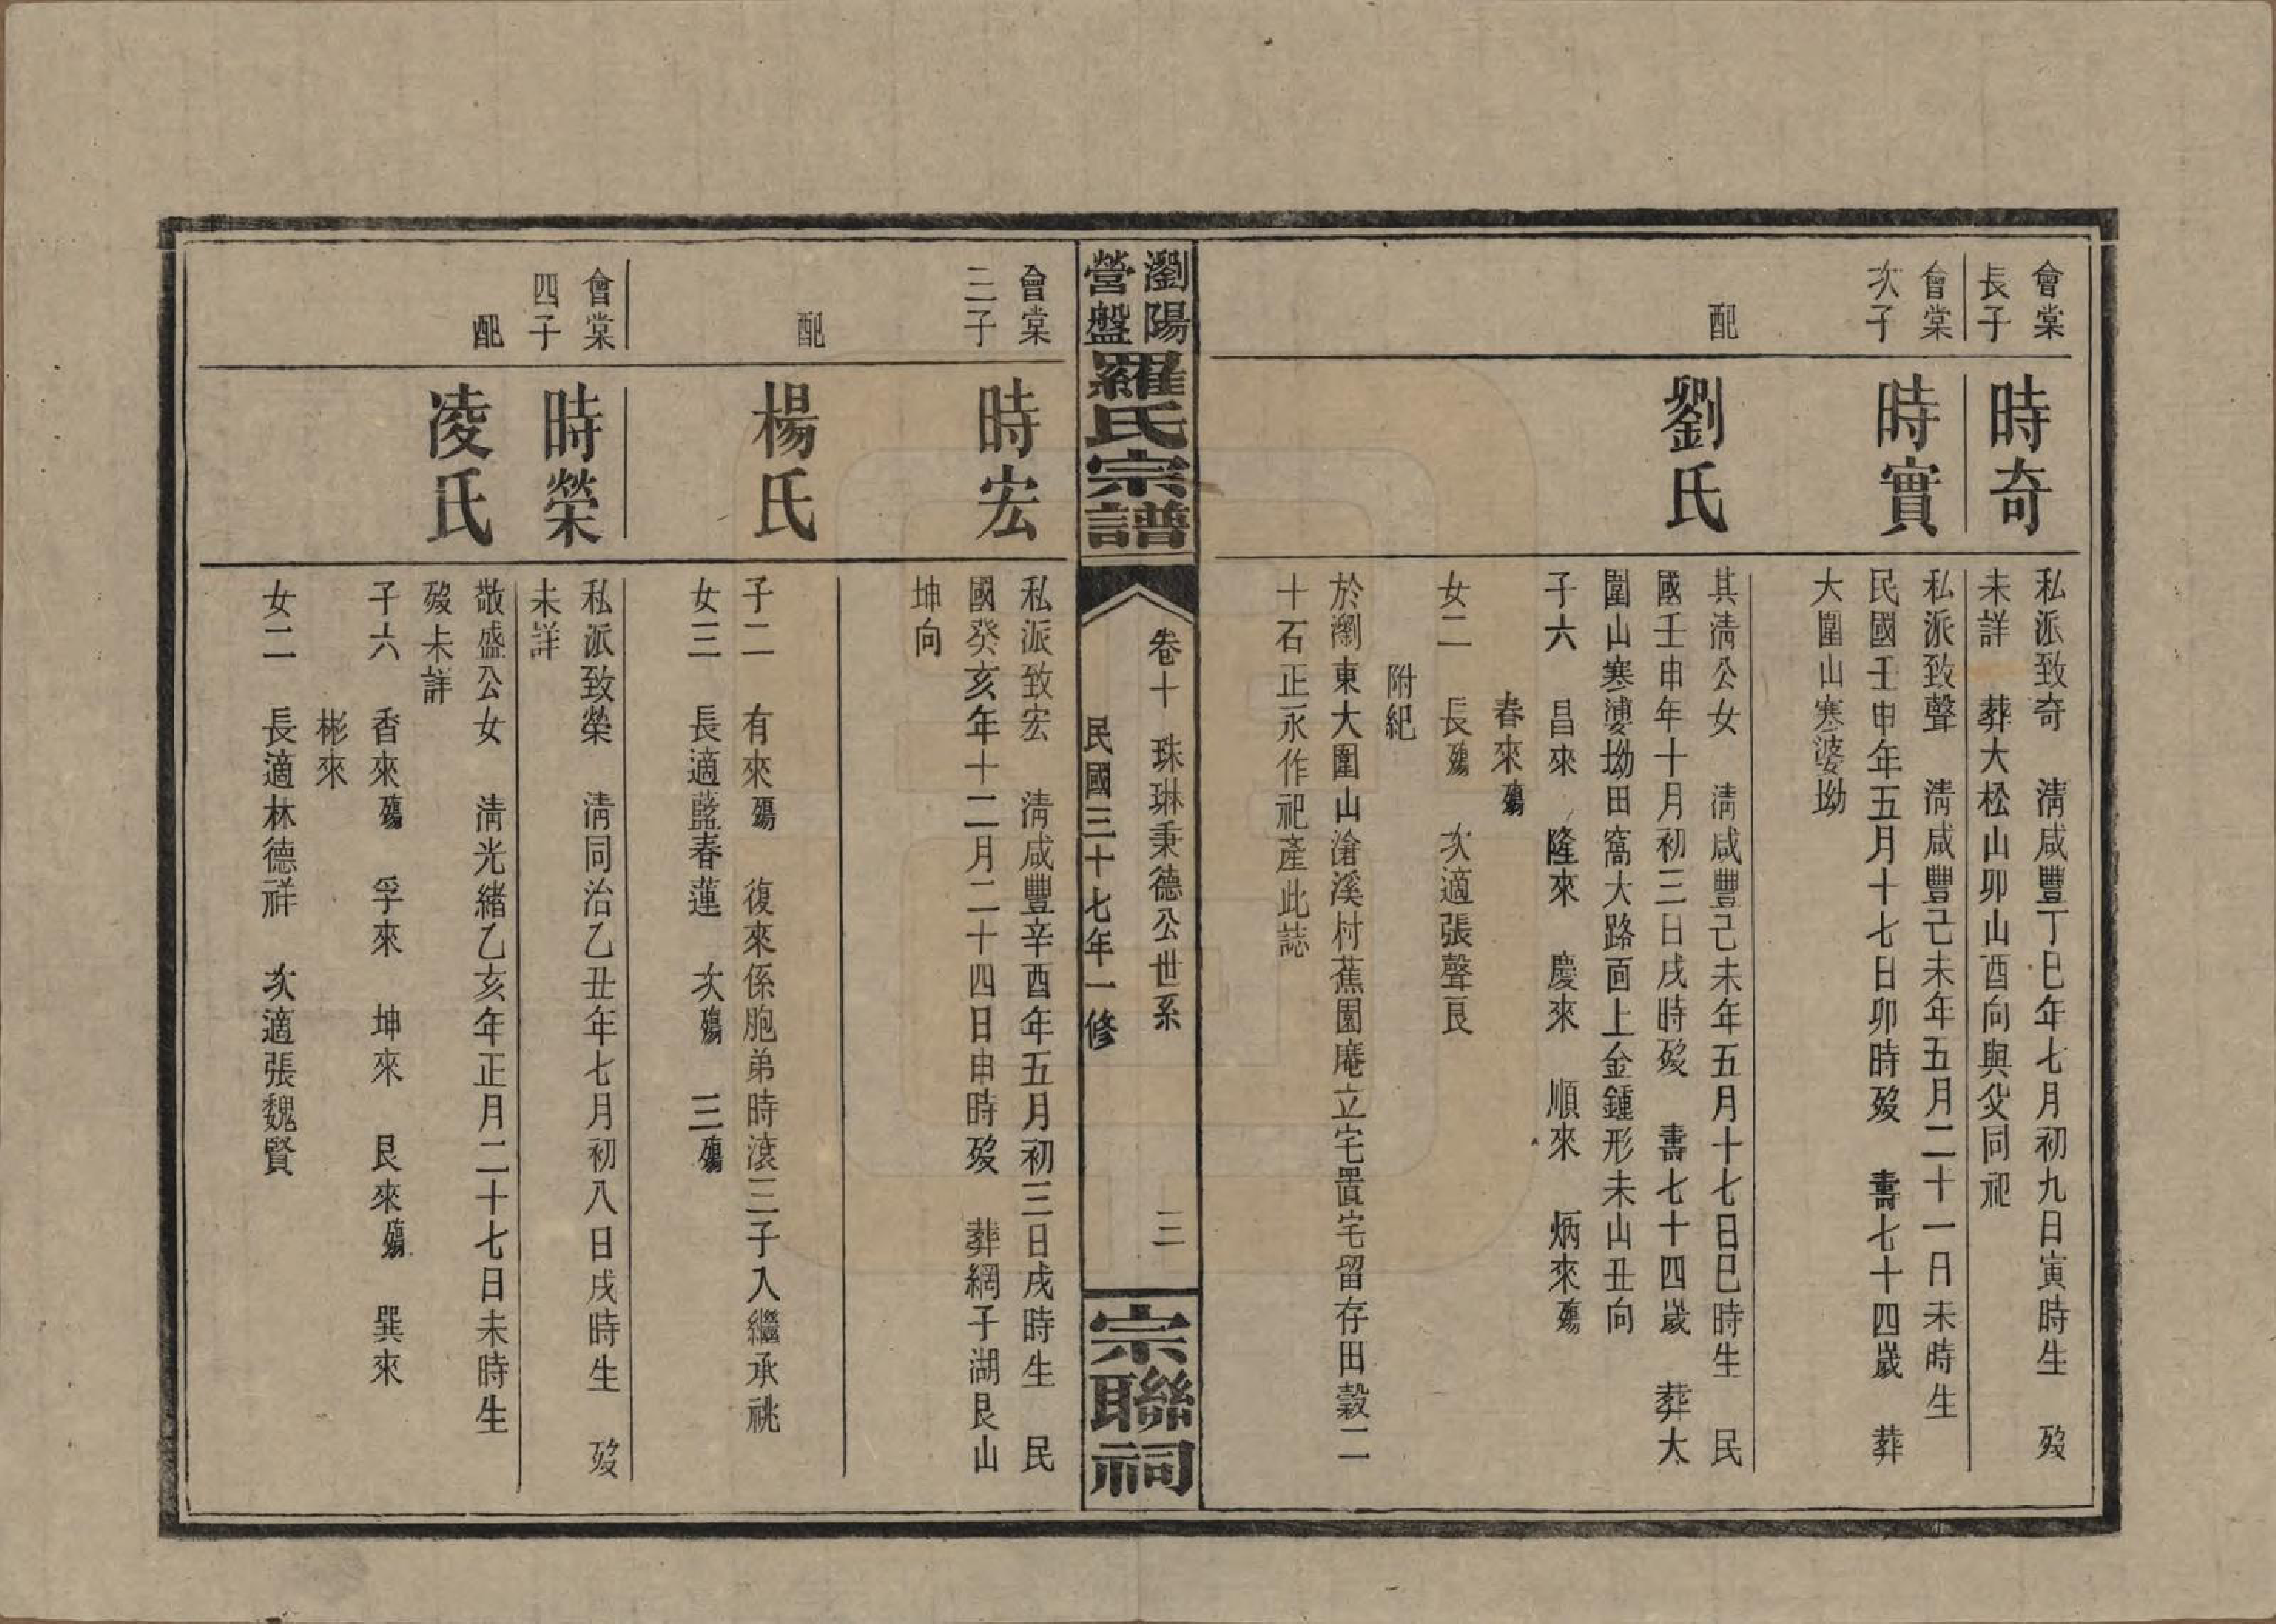 會棠
長子
時奇
私派致奇　淸咸豐丁巳年七月初九日寅時生　歿
未詳　葬大松山卯山酉向與父同祀
會棠
次子
時實
私派致聲　淸咸豐己未年五月二十一日未時生
民國壬申年五月十七日卯時歿　壽七十四歲　葬
大圍山寒婆坳
配
劉氏
其淸公女　淸咸豐己未年五月十七日巳時生　民
國壬申年十月初三日戌時歿　壽七十四歲　葬大
圍山寒婆坳田窩大路面上金鍾形未山丑向
子六　昌來　隆來　慶來　順來　炳來殤
春來殤
女二　長殤　次適張聲良
附紀
於瀏東大圍山滄溪村蕉園庵立宅置宅留存田穀二
十石正永作祀產此誌
瀏陽
營盤
羅氏宗譜
卷十　珠琳秉德公世系　三
民國三十七年一修
宗聯祠
會棠
三子
時宏
私派致宏　淸咸豐辛酉年五月初三日戌時生　民
國癸亥年十二月二十四日申時歿　葬網子湖艮山
坤向
配
楊氏
子二　有來殤　復來係胞弟時滾三子入繼承祧
女三　長適藍春蓮　次殤　三殤
會棠
四子
時榮
私派致榮　淸同治乙丑年七月初八日戌時生　歿
未詳
配
凌氏
敬盛公女　淸光緒乙亥年正月二十七日未時生
歿未詳
子六　香來殤　孚來　坤來　艮來殤　巽來
彬來
女二　長適林德祥　次適張魏賢